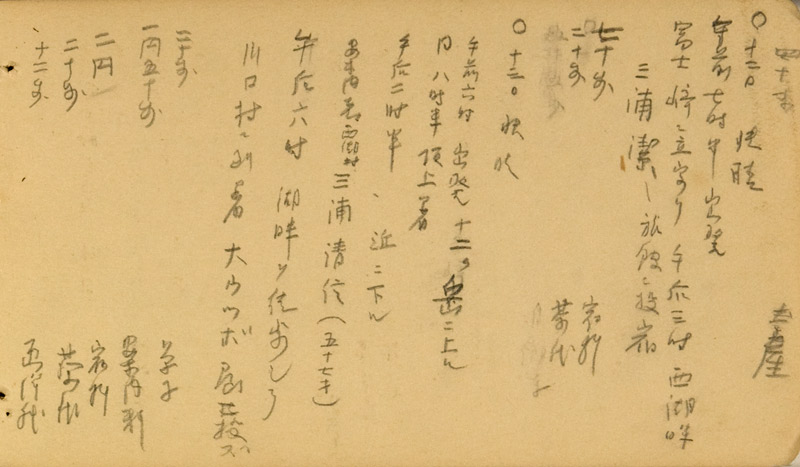 四十銭 土産
〇十二日 快晴
午前七時半出発
富士嶽ニ立寄リ午后三時西湖畔
三浦潔ノ旅館ニ投宿
七十銭 宿料
二十銭 茶代
〇十三日 快晴
午前六時出発十二ヶ岳ニ上ル
同八時半頂上着
午后二時半
、近ニ下ル
案内者 三浦清信(五十七才)
午后六時湖畔ヲ徒歩シテ
川口村ニ到着大ウツボ 屋ニ投ズ
二十銭 菓子
一円五十銭 案内料
二円 宿料
二十銭 茶代
十二銭